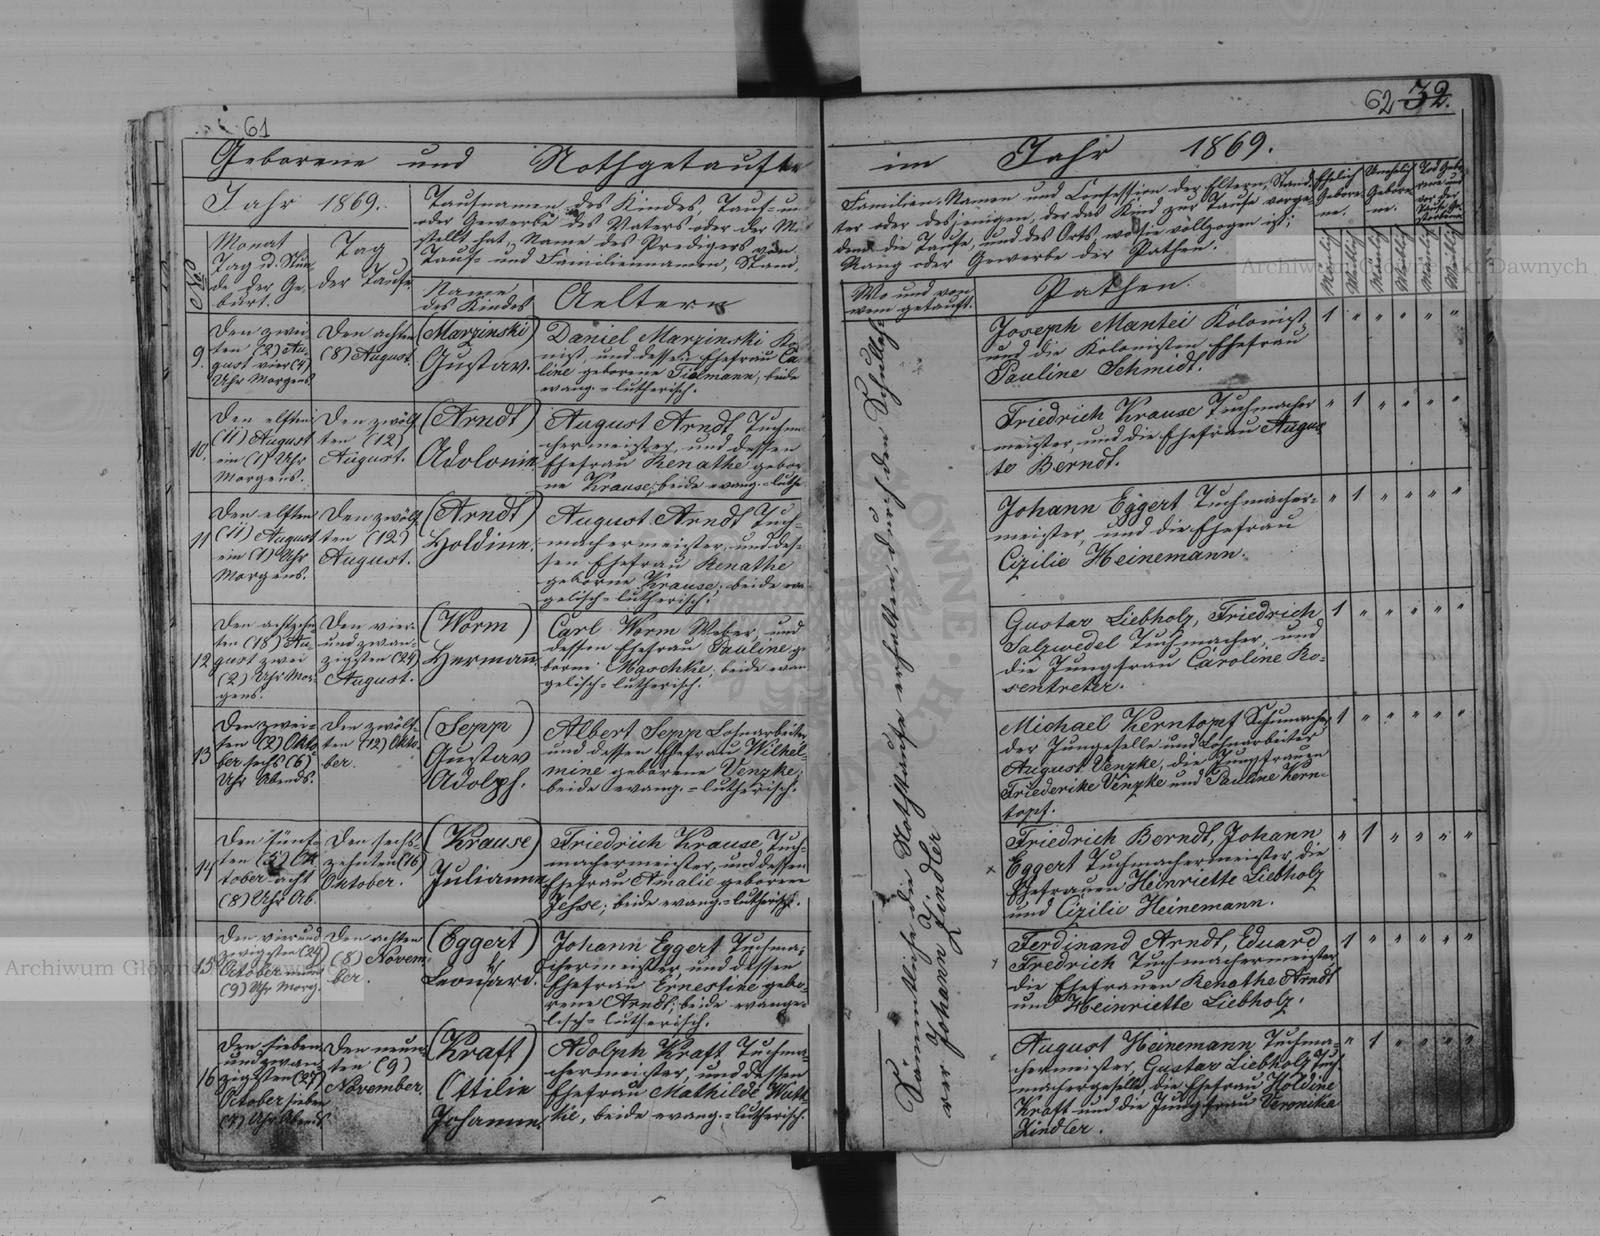 61
Geborene und Nothgetaufte
Jahr 1869.
Taufnamen des Kindes, Tauf- u
oder Gewerbe des Vaters oder der Mu
stellt hat, Name des Predigers von
Tauf- und Familiennamen, Stand,
No
Monat
Tag u. Stun
de der Ge-
burt.
Tag
der Taufe
Name
des Kindes
Aeltern
9.
Den zwei-
ten (2) Au-
gust vier (4)
Uhr Morgens.
Den achten
(8) August.
(Marzinski)
Gustav.
Daniel Marzinski Ko
nist, und dessen Ehefrau Ca
line geborene Tiezmann, beide
evang.-lutherisch.
10.
Den elften
(11) August
ein (1) Uhr
Morgens.
Den zwölf
ten (12)
August.
(Arndt)
Adolonie.
August Arndt Tuchma
chermeister, und dessen
Ehefrau Renathe gebor
ne Krause; beide evang.-luthe
11
Den elften
(11) August
ein (1) Uhr
Morgens.
Den zwölf
ten (12)
August.
(Arndt)
Holdine.
August Arndt Tuch-
machermeister, und des-
sen Ehefrau Renathe
geborne Krause; beide evan
gelisch-lutherisch.
12
Den achtzehn
ten (18) Au-
gust zwei
(2) Uhr Mor-
gens.
Den vier-
und zwan-
zigsten (24)
August.
(Worm)
Hermann
Carl Worm Weber, und
dessen Ehefrau Pauline ge
borne Maschke; beide evan
gelisch-lutherisch.
13
Den zwei-
ten (2) Okto
ber sechs (6)
Uhr Abends.
Den zwölf-
ten (12) Okto
ber.
(Sepp)
Gustav
Adolph.
Albert Sepp Lohnarbeiter
und dessen Ehefrau Wilhel-
mine geborene Venzke;
beide evang.-lutherisch.
14
Den fünf-
ten (5) Ok
tober acht
(8) Uhr Ab.
Den sechs-
zehnten (16)
Oktober.
(Krause)
Julianna
Friedrich Krause, Tuch-
machermeister, und dessen
Ehefrau Amalie geborene
Jesse; beide evang.-lutherisch.
15
Den vier und
zwanzigsten (24)
October neun
(9) Uhr Morg.
Den achten
(8) Novem
ber.
(Eggert)
Leonhard.
Johann Eggert Tuchma-
chermeister, und dessen
Ehefrau Ernestine gebo-
rene Arndt; beide evange-
lisch-lutherisch.
16
Den sieben
und zwan-
zigsten (27)
October sieben
(7) Uhr Abends
Den neun-
ten (9)
November.
(Kraft)
Ottilie
Johanne.
Adolph Kraft, Tuchma-
chermeister, und dessen
Ehefrau Mathilde Witt
ke, beide evang.-lutherisch.
62 32.
im Jahr 1869.
Familien-Namen und Confession der Eltern, Stand
ter oder desjenigen, der das Kind zur Taufe vorge-
dem die Taufe, und des Orts wo sie vollzogen ist;
Rang oder Gewerbe der Pathen.
Ehelich
Gebore-
ne.
Unehelich
Gebore-
ne.
Männlich
Weiblich
Männlich
Weiblich
Männlich
Weiblich
Wo und von
wem getauft.
Pathen.
Sämmtliche die Nothtaufe erhalten, durch den Schulleh-
rer Johann Zindler
Joseph Mantei Kolonist
und die Kolonisten Ehefrau
Pauline Schmidt.
1 " " " " "
Friedrich Krause Tuchmacher
meister, und die Ehefrau Augus
te Berndt.
" 1 " " " "
Johann Eggert Tuchmacher-
meister, und die Ehefrau
Cizilie Heinemann.
" 1 " " " "
Gustav Liebholz, Friedrich
Salzwedel Tuchmacher, und
die Jungfrau Caroline Ro-
sentreter.
1 " " " " "
Michael Kerntopf Schumacher
der Jungeselle und Lohnarbeiter
August Venzke, die Jungfrauen
Friederike Venzke und Pauline Kern-
topf.
1 " " " " "
Friedrich Berndt, Johann
Eggert Tuchmachermeister, die
Ehefrauen Heinriette Liebholz
und Cizilie Heinemann.
" 1 " " " "
Ferdinand Arndt, Eduard
Fredrich Tuchmachermeister
die Ehefrauen Renathe Arndt
und Heinriette Liebholz.
1 " " " " "
August Heinemann Tuchma-
chermeister, Gustav Liebholz Tuch
machergeselle, die Ehefrau Holdine
Kraft und die Jungfrau Veronika
Zindler.
" 1 " " " "